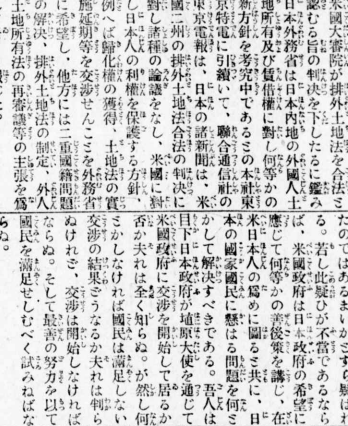 米國大審院が排外土地法を合法と
認むる旨の判決を下したるに鑑み
日本外務省は日本内地の外國人土
地所有及び賃借權に對し何等かの
新方針を考究中であるとの本社東
京特電に引續いて、聯合通信社の
東京電報は、日本の諸新聞は、米
國二州の排外土地法合法の判決に
對し諸種の論議をなし、米國に對
し日本人の利權を保護する方針、
例へば歸化權の獲得、土地法の實
施延期等を交渉せんことを外務省
に希望し、他方には二重國籍問題
の解決、排外土地法の制定、外人
土地所有法の再審議等の主張を爲
たのではあるまいかとすら思はれ
る。若し此疑ひが不當であるなら
ば、米國政府は日本政府の希望に
應じて何等かの善後策を講じ、在
米日本人の爲めに圖ると共に、日
本の國家國民に懸はる問題を何と
かして解決すべきである。吾人は
目下日本政府が埴原大使を通じて
米國政府に交渉を開始して居るか
否か夫れは全く知らぬ。が然し何
とかしなければ國民は滿足しない
交渉の結果どうなるか夫れは判ら
ぬけれど、交渉は開始しなければ
ならぬ。そして最善の努力を以て
國民を滿足せしむべく試みねばな
らぬ。